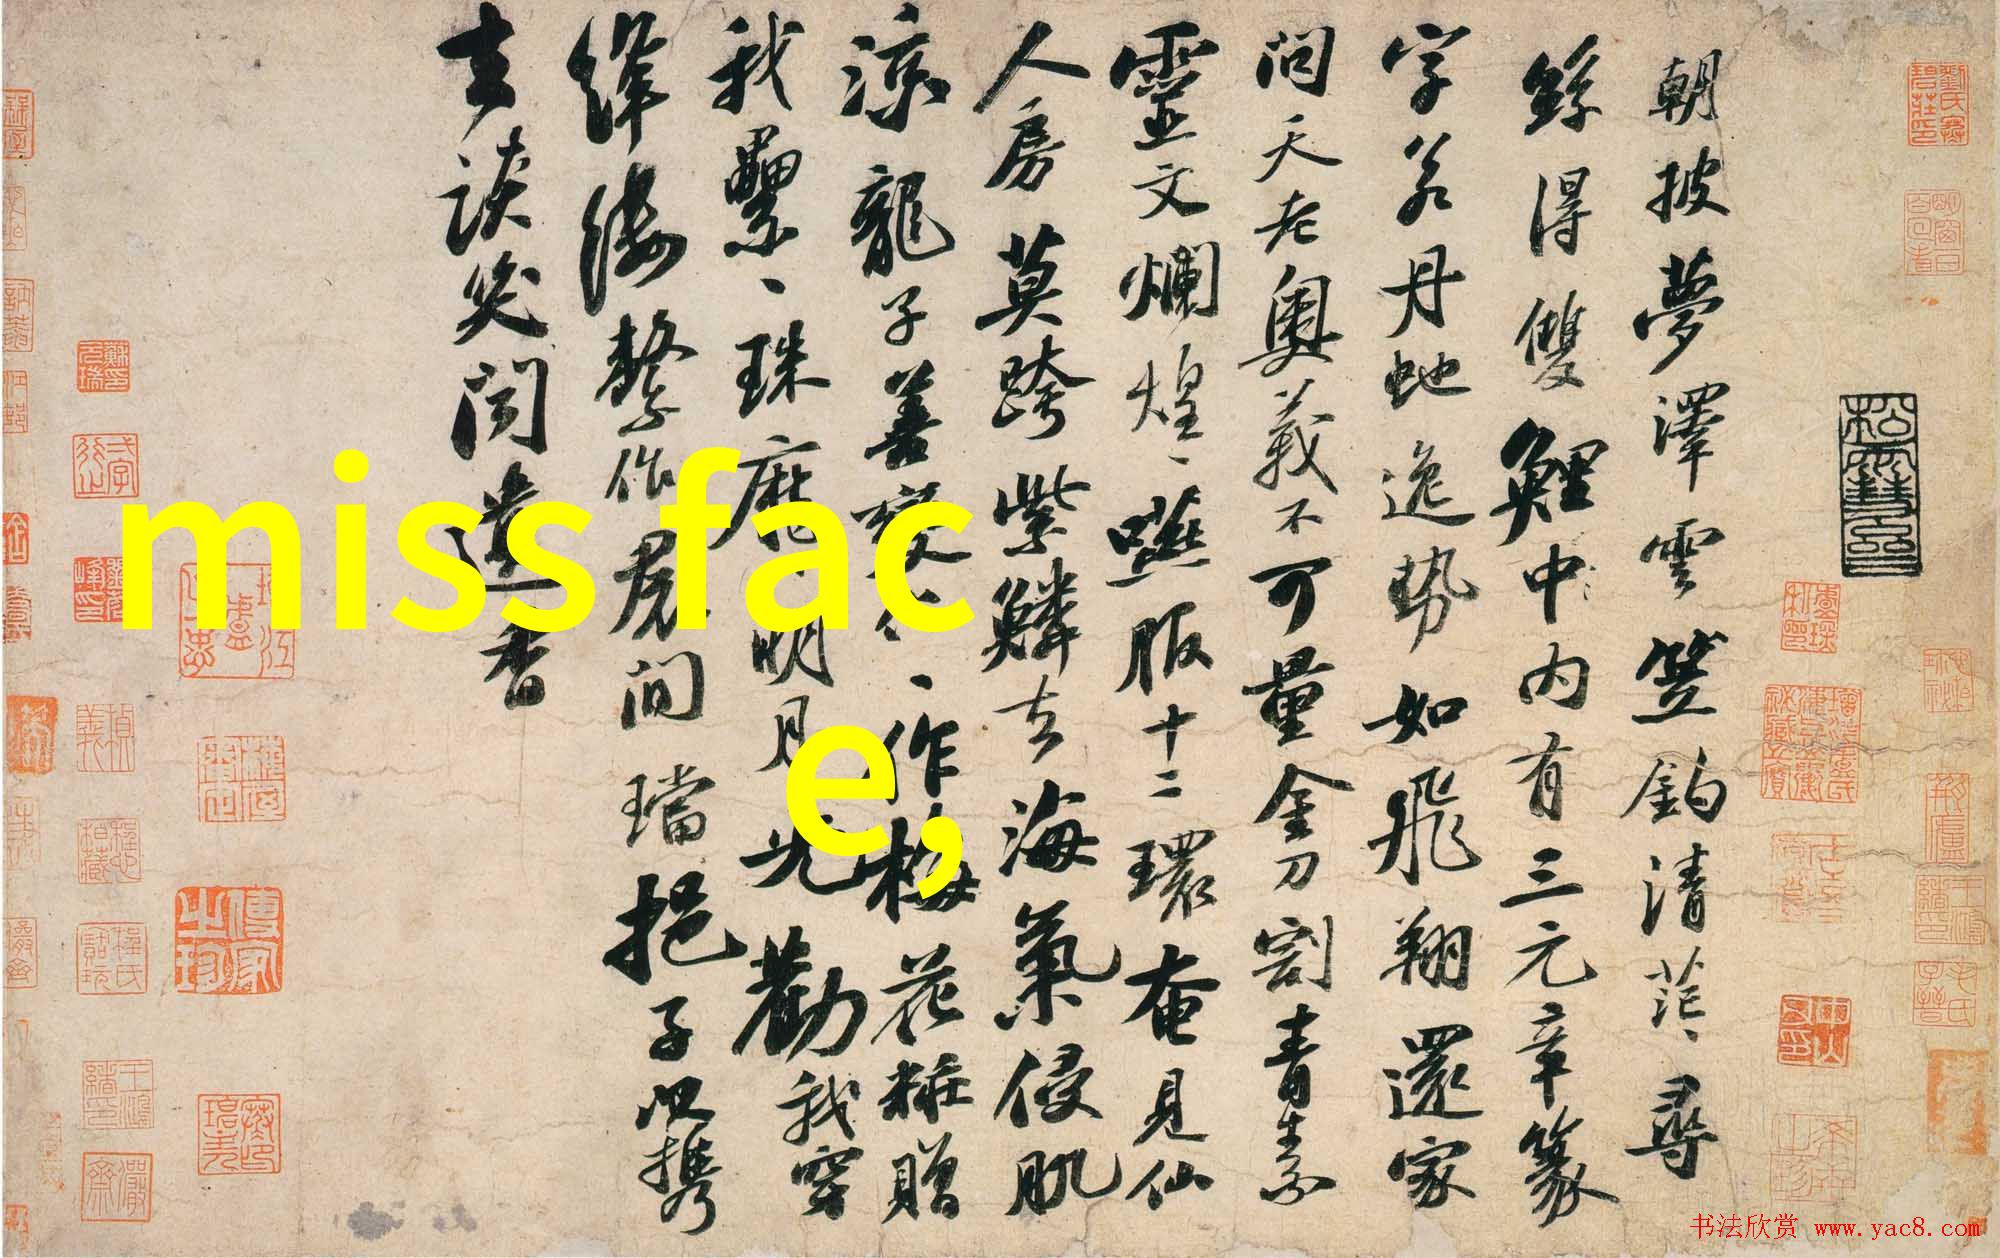 朝披夢澤雲笠釣清茫、尋
絲得雙鯉中内有三元章篆
字若丹虵逸势如飛翔還家
問天老奧義不可量金刀割青素
靈文爛煌、嚥服十二環奄見仙
人房莫跨紫鱗去海氣侵肌
涼龍子善變化、作梅花粧贈
我纍、珠靡、明月光勸我穿
絳縷繫作裙間璫挹子以携
去談笑聞遺香
miss fac
e,
书法欣赏 www.yac8.com